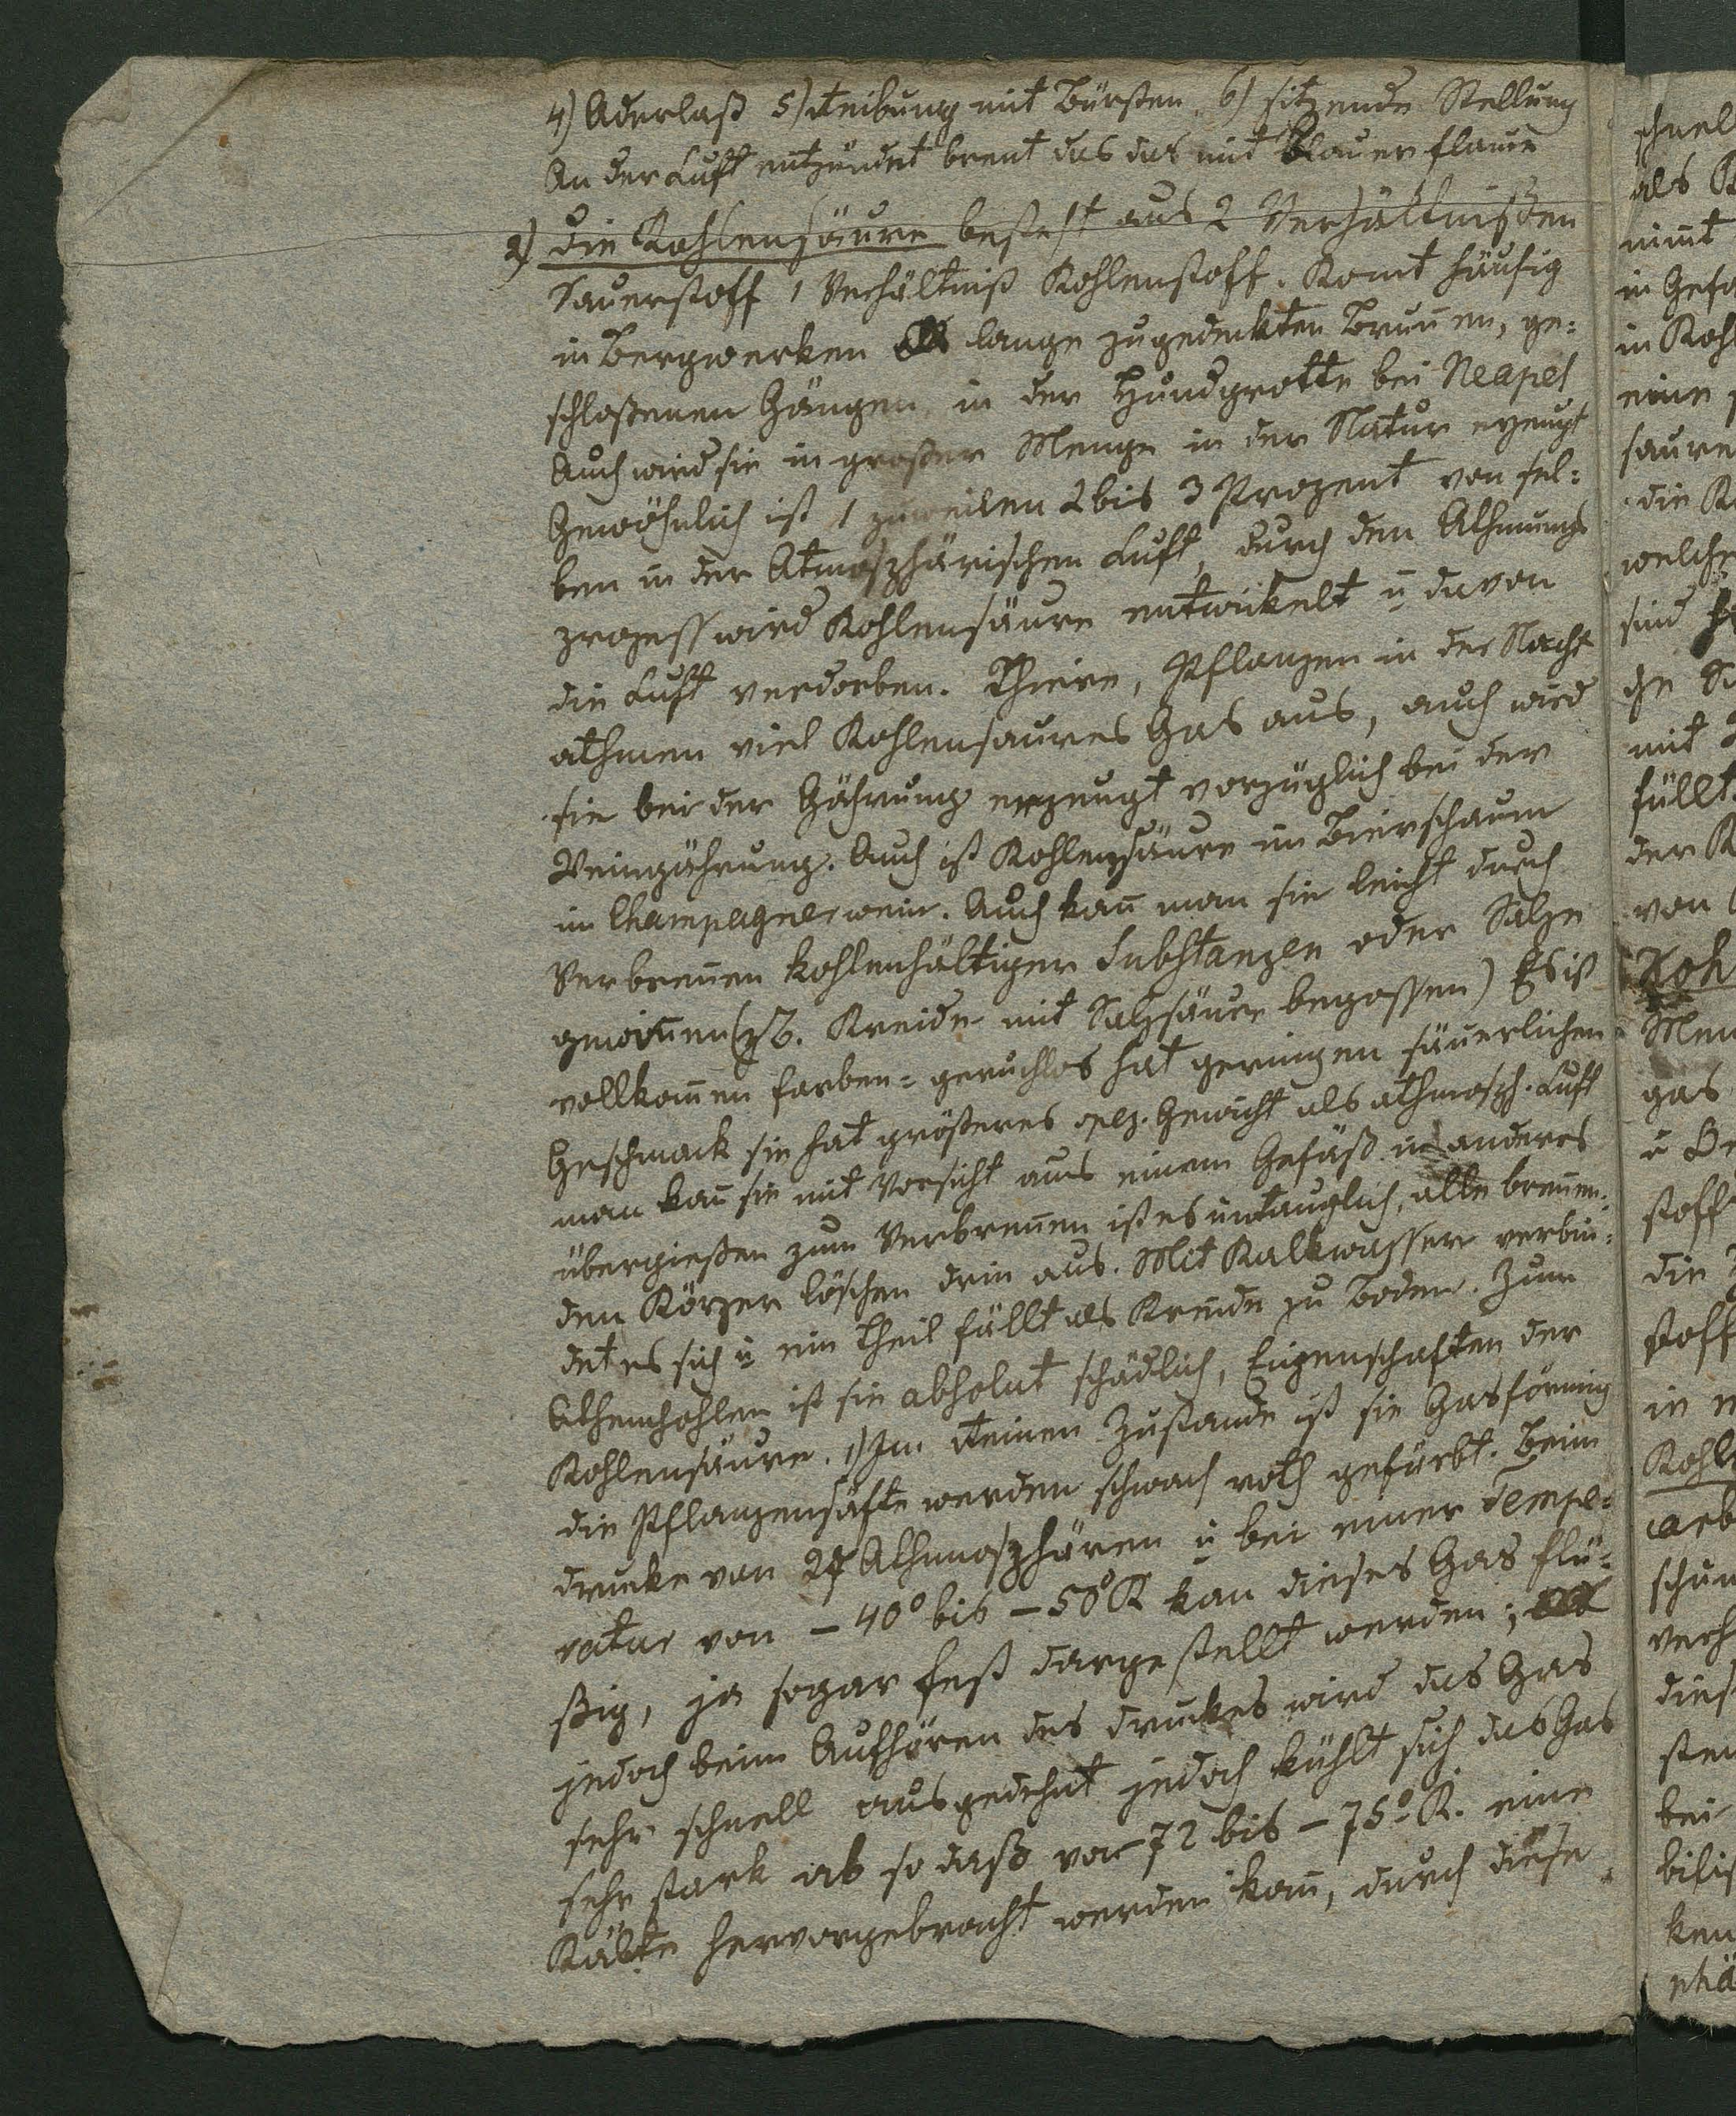 4) Aderlaß 5) Reibung mit Bürsten. 6) sitzende Stellung
An der Luft entzündet brent das das mit blauer flam̄e
2) Die Kohlensäure besteht aus 2 Verhältnißen
Sauerstoff 1 Verhältniß Kohlenstoff. Komt häufig
in Bergwerken lange zugedeckten Brun̄en, ge=
schloßenen Gängen, in der Hundgrotte bei Neapel
Auch wird sie in großer Menge in der Natur erzeugt
Gewöhnlich ist 1 zuweilen 2 bis 3 Prozent von sel=
ben in der Atmosphärischen Luft, durch den Athmungs
prozess wird Kohlensäure entwikelt u davon
die Luft verdorben. Thiere, Pflanzen in der Nacht
athmen viel Kohlensaures Gas aus, auch wird
sie bei der Gährung erzeugt vorzüglich bei der
Weingährung. Auch ist Kohlensäure im Bierschaum
im Champagnerwein. Auch kan̄ man sie leicht durch
Verbren̄en kohlenhältiger Substanzen oder Salze
gewin̄en (zB. Kreide mit Salzsäure begossen) Es ist
vollkom̄en farben= geruchlos hat geringen säuerlichen
Geschmack sie hat größeres spez. Gewicht als athmosph. Luft
man kan̄ sie mit Vorsicht aus einem Gefäß in anderes
übergießen zum Verbren̄en ist es untauglich, alle bren̄en=
den Körper löschen drin aus. Mit Kalkwasser verbin=
det es sich u ein Theil fällt als Kreide zu Boden. Zum
Athemhohlen ist sie absolut schädlich, Eigenschaften der
Kohlensäure. 1) Im Reinen Zustande ist sie Gasförmig
die Pflanzensäfte werden schwach roth gefärbt. Beim
drucke von Athmosphären u bei einer Tempe=
ratur von – 40° bis – 50° R kan dieses Gas flü=
ßig, ja sogar fest dargestellt werden;
jedoch beim Aufhören des druckes wird das Gas
sehr schnell ausgedehnt jedoch kühlt sich das Gas
sehr stark ab so daß von – 72 bis – 75° R. eine
Kälte hervorgebracht werden kan̄, durch diese
schnel
als
nim̄t
in Gefä
in Kohl
eine
saure
die K
welche
sind
ge
mit
füllt
der K
von
Koh
Men
gas
u
stoff
die
stoff
in
Kohl
arb
schun
verh
dies
sten
bei
ken
phä